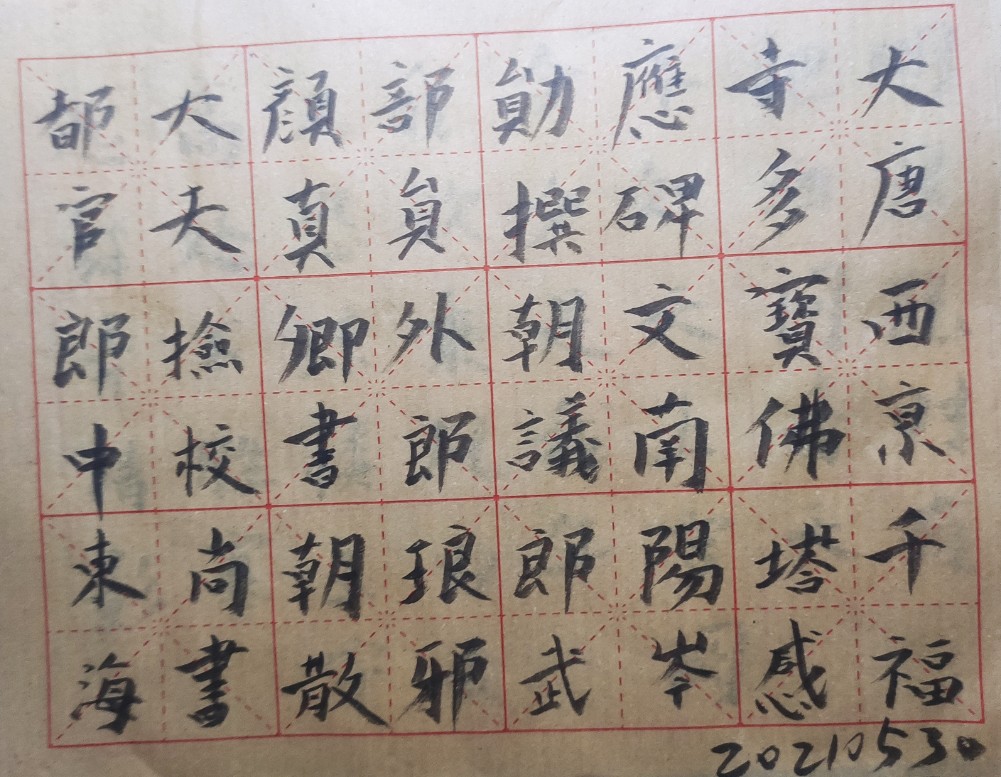 大唐西京千福
寺多寳佛塔感
應碑文南陽岑
勛撰朝議郎武
部貟外郎琅邪
顔真卿書朝散
大夫撿校尚書
都官郎中東海
20210530